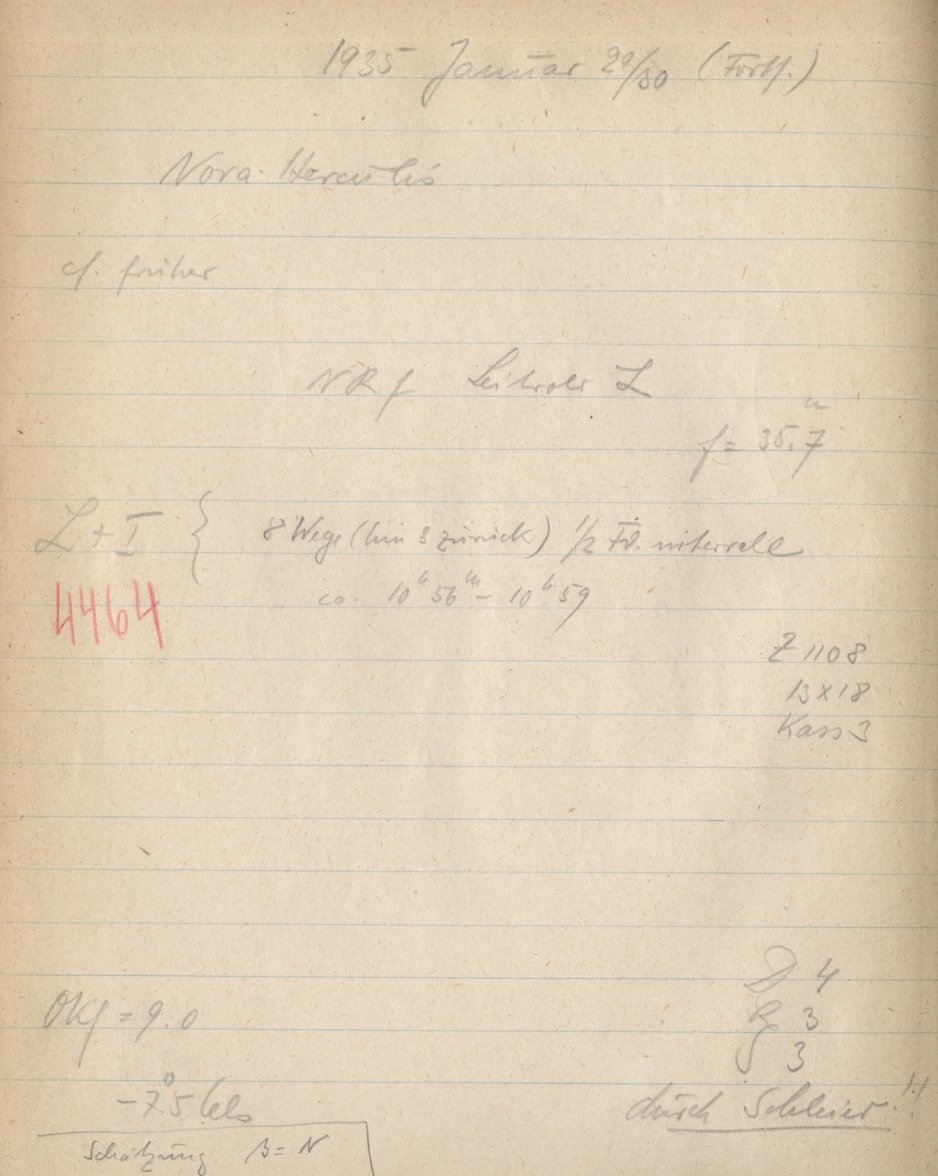 1935 Januar 29/30 (Forts.)
Nova Herculis
cf. früher
NRf Leitrohr L
f = 35,7
L + I { 8 Wege (hin & zurück) 1/2 Fd. intervall
ca. 10h 56m - 10h 59
4464
Z 1108
13x18
Kass 3
D 4
OKf = 9.0
R 3
S 3
-7°.5 Cels
durch Schleier!!
Schätzung β = N